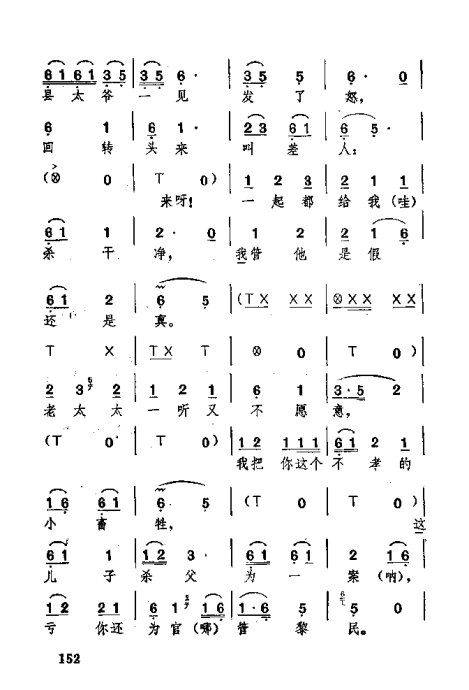 6 1 6 1 3 5 | 3 5 6 · | 3 5 5 | 6 · 0 |
县太爷一见 发了怒，
6 1 | 6 1 · | 2 3 6 1 | 6 5 · |
回转头来 叫差人：
(⊗ 0 | T 0) | 1 2 3 | 2 1 1 |
来呀！ 一起都给我(哇)
6 1 1 | 2 · 0 | 1 2 | 2 1 6 |
杀干净， 我管他是假
6 1 2 | 6 5 | (T X X X | ⊗ X X X X |
还是真。
T X | T X T | ⊗ 0 | T 0) |
2 3 5 2 | 1 2 1 | 6 1 | 3 · 5 2 |
老太太一听又不愿意，
(T 0 | T 0) | 1 2 1 1 1 | 6 1 2 1 |
我把你这个不孝的
1 6 6 1 | 6 · 5 | (T 0 | T 0) |
小畜牲， 这
6 1 1 | 1 2 3 · | 6 1 6 1 | 2 1 6 |
儿子杀父为一案(呐)，
1 2 2 1 | 6 1 1 6 | 1 · 6 5 | 5 0 |
亏你还为官(哪)管黎民。
152